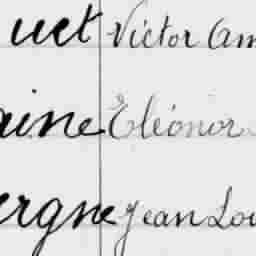 uet Victor Am
aine Eléonor
ergne Jean Lou